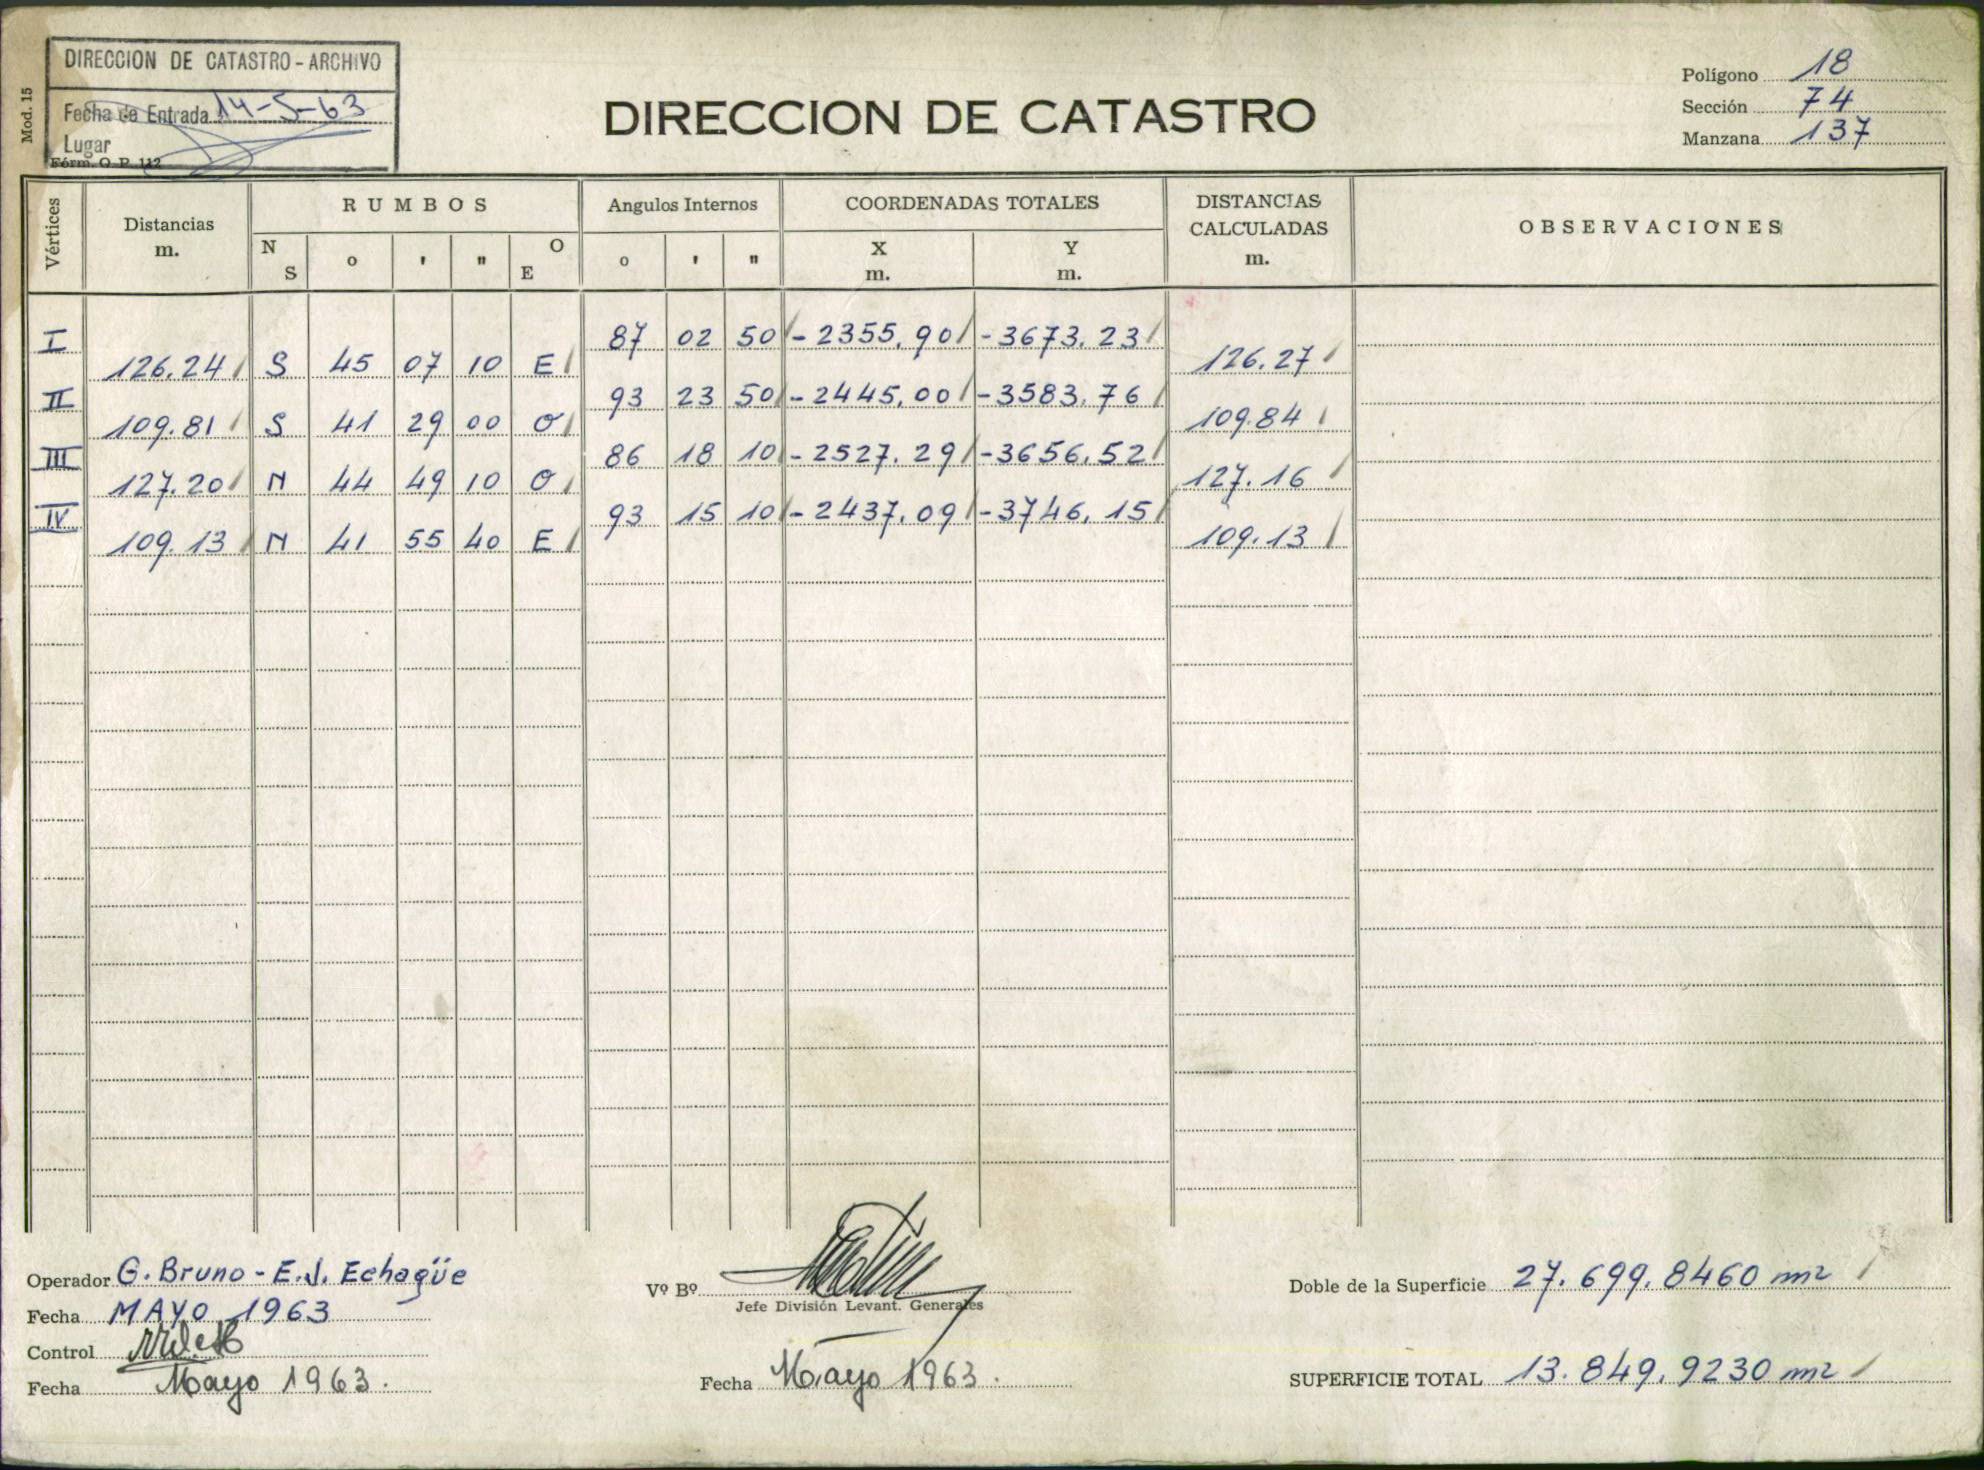 DIRECCION DE CATASTRO - ARCHIVO
Fecha de Entrada 14-5-63
Lugar
Fórm. O. P. 112
Mod. 15
DIRECCION DE CATASTRO
Polígono 18
Sección 74
Manzana 137
Vértices Distancias m. RUMBOS Angulos Internos COORDENADAS TOTALES DISTANCIAS CALCULADAS m. OBSERVACIONES
N S o ' " O E o ' " X m. Y m.
I 87 02 50 -2355,90 -3673,23
126.24 S 45 07 10 E 126.27
II 93 23 50 -2445,00 -3583,76
109.81 S 41 29 00 O 109.84
III 86 18 10 -2527.29 -3656,52
127.20 N 44 49 10 O 127.16
IV 93 15 10 -2437,09 -3746,15
109.13 N 41 55 40 E 109.13
Operador G. Bruno - E.J. Echagüe
Fecha MAYO 1963
Control
Fecha Mayo 1963.
Vº Bº
Jefe División Levant. Generales
Fecha Mayo 1963.
Doble de la Superficie 27.699,8460 m2
SUPERFICIE TOTAL 13.849,9230 m2